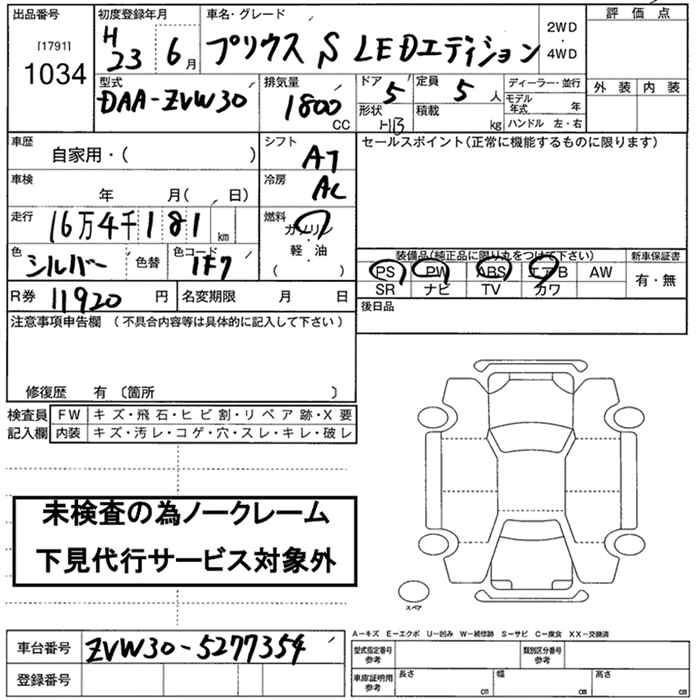 出品番号 初度登録年月 車名・グレード 評価点
[1791] 1034
H23 6月 プリウス S LEDエディション 2WD・4WD
型式 排気量 ドア 5 定員 5人 ディーラー・並行 外装 内装
DAA-ZVW30 1800CC 形状 HB 積載 kg モデル年式 年
ハンドル 左・右
車歴 シフト セールスポイント(正常に機能するものに限ります)
自家用・( ) AT
車検 年 月( 日) 冷房 AC
走行 16万4千181km 燃料 ガソリン
軽・油
( )
色 シルバー 色替 色コード 1F7
装備品(純正品に限り丸をつけて下さい) 新車保証書
PS PW ABS エアB AW 有・無
SR ナビ TV カワ
R券 11920円 名変期限 月 日 後日品
注意事項申告欄 (不具合内容等は具体的に記入して下さい)
修復歴 有 〔箇所 〕
検査員 FW キズ・飛石・ヒビ割・リペア跡・X要
記入欄 内装 キズ・汚レ・コゲ・穴・スレ・キレ・破レ
未検査の為ノークレーム
下見代行サービス対象外
スペア
A-キズ E-エクボ U-凹み W-補修跡 S-サビ C-腐食 XX-交換済
車台番号 ZVW30-5277354
型式指定番号 参考 類別区分番号 参考
登録番号 車庫証明用 参考 長さ cm 幅 cm 高さ cm